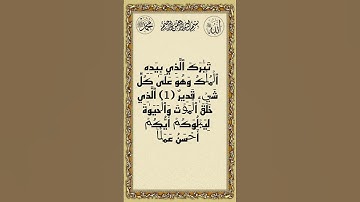 الله بسم الله الرحمن الرحيم محمد
تَبَٰرَكَ ٱلَّذِي بِيَدِهِ
ٱلۡمُلۡكُ وَهُوَ عَلَىٰ كُلِّ
شَيۡءٖ قَدِيرٌ (1) ٱلَّذِي
خَلَقَ ٱلۡمَوۡتَ وَٱلۡحَيَوٰةَ
لِيَبۡلُوَكُمۡ أَيُّكُمۡ
أَحۡسَنُ عَمَلٗا